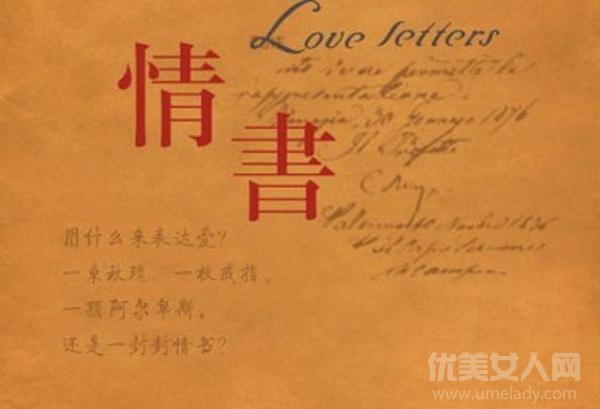 Love letters
情
書
nto e ne permette la
rappresentazione.
Venezia, 30 Gennajo 1876
Il Prefetto
用什么来表达爱?
一束玫瑰、一枚戒指、
一颗阿尔卑斯,
还是一封封情书?
优美女人网
www.umelady.com